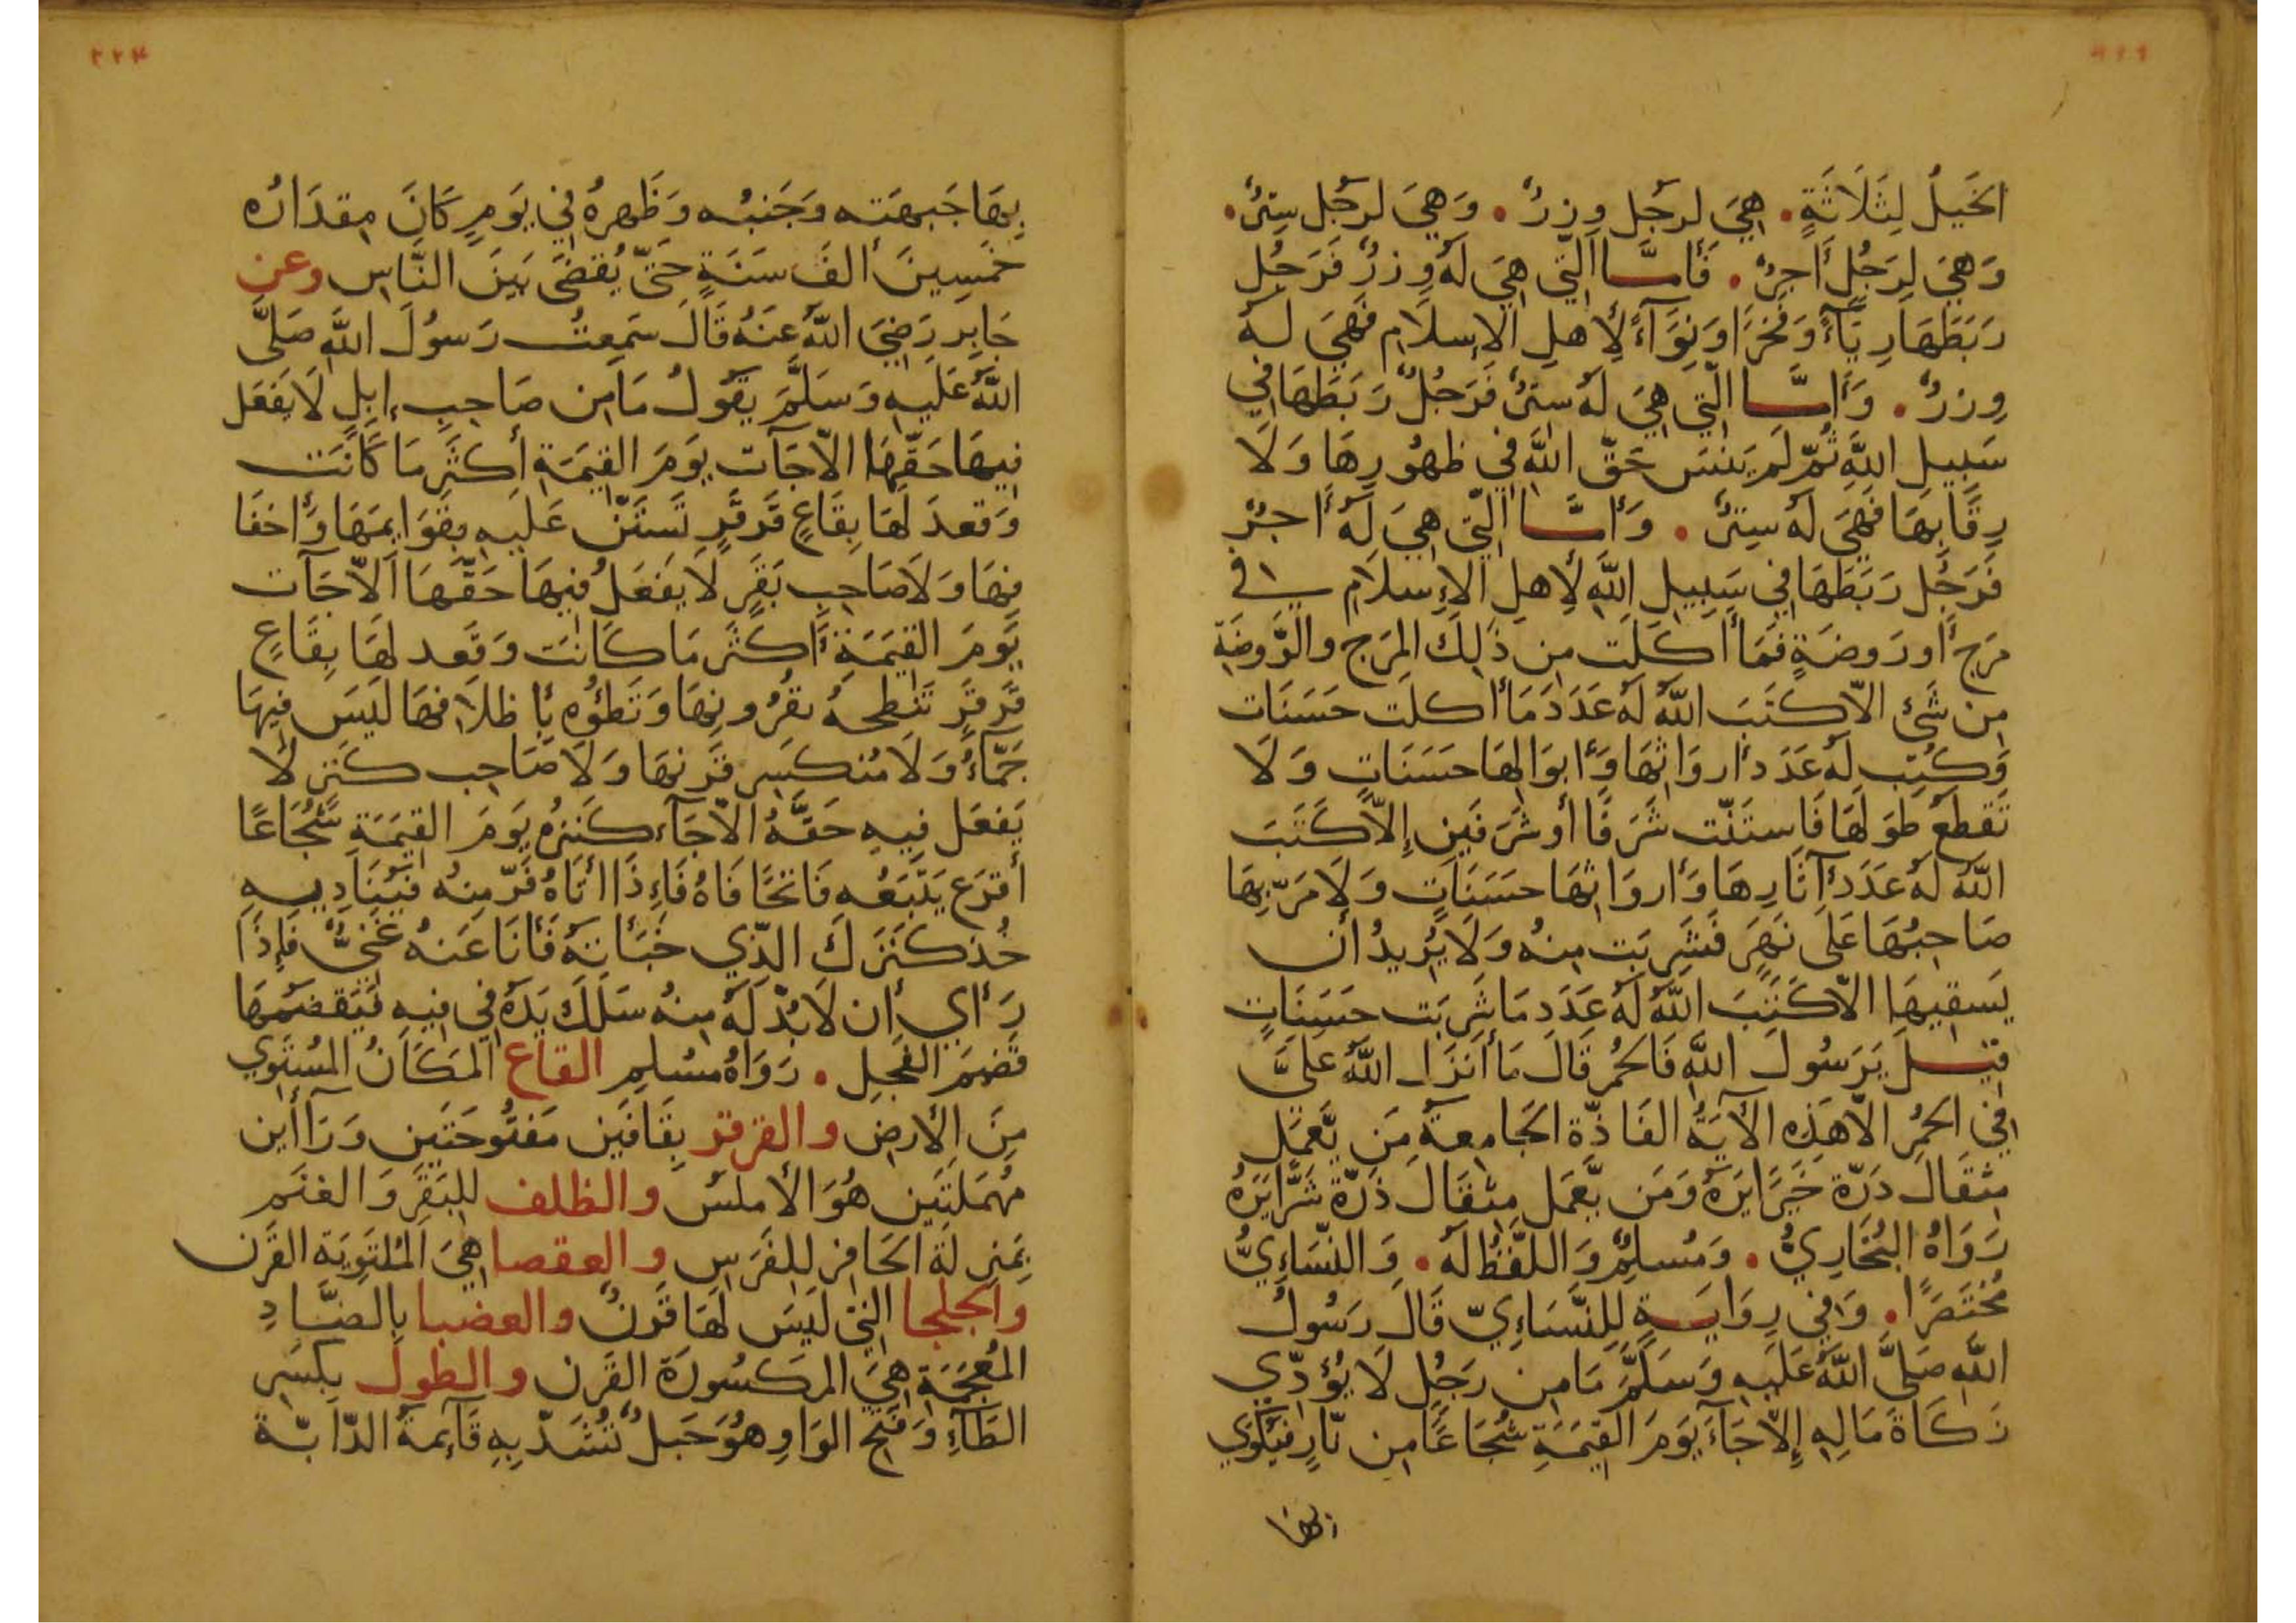 الخَيلُ لِثَلَاثَةٍ. هِيَ لرجُلٍ وِزرٌ. وَهِيَ لرجُل سِترٌ.
وَهِيَ لِرَجُلٍ أَجرٌ. فَأَمَّا الَّتي هِيَ لَهُ وِزرٌ فَرَجُل
رَبَطَهَا رِيَآءً وَفَخرًا وَنِوَآءً لِأَهلِ الإسلَامِ فَهِيَ لهُ
وِزرٌ. وَأَمَّا الّتي هِيَ لهُ سِترٌ فَرَجُلٌ رَبَطَهَا في
سَبِيلِ اللَّهِ ثُمّ لَم يَنسَ حَقّ اللَّهِ في ظُهُورِهَا وَلَا
رِقَابِهَا فَهِيَ لهُ سِترٌ. وَأَمَّا الّتي هِيَ لَهُ أَجرٌ
فَرَجُل رَبَطَهَا في سَبِيلِ اللَّهِ لِأَهلِ الإِسلَامِ في
مَرجٍ أَو رَوضَةٍ فَمَا أَكَلَت مِن ذَلِكَ المَرجِ والرَّوضَةِ
مِن شَيْ الّا كَتَبَ اللَّهُ لَهُ عَدَدَ مَا أَكلَت حَسَنَات
وَكُتِب لَهُ عَدَدَ أَروَاثِهَا وَأَبوَالِهَا حَسَنَاتٍ وَلَا
تَقطَعُ طِوَلَهَا فَاستَنّت شَرَفًا أَو شَرَفَينِ إِلّا كَتَبَ
اللَّهُ لَهُ عَدَدَ آثَارِهَا وَأَروَاثِهَا حسَنَاتٍ وَلَا مَرّ بِهَا
صَاحِبُهَا عَلَى نَهَرٍ فَشَرِبَت مِنهُ وَلَا يُرِيدُ أَن
يَسقِيهَا الّا كَتَبَ اللَّهُ لَهُ عَدَدَ مَا شَرِبَت حَسَنَاتٍ
قِيلَ يَرَسُولَ اللَّهِ فَالحُمُر قَالَ مَا أَنزَل اللَّهُ عَلَيَّ
في الحُمُرِ الّا هَذِهِ الآيَةُ الفَاذّة الجَامِعَةُ مَن يَّعمَل
مِثقَالَ ذَرّة خَيرًا يَرَهُ وَمَن يَّعمَل مِثقَالَ ذَرّة شَرًّا يَرَهُ
رَوَاهُ البُخَارِيُّ. وَمُسلِمٌ وَاللَّفظُ لَهُ. وَالنّسَاءِيُّ
مُختَصَرًا. وَفي رِوَايَةٍ لِلنَّسَاءِيّ قَالَ رَسُولُ
اللَّهِ صَلَّى اللَّهُ عَلَيهِ وَسَلَّمَ مَا مِن رَجُلٍ لَا يُؤَدّي
زَكَاةَ مَالِهِ إِلّا جَآءَ يَومَ القِيَمَةِ شُجَاعًا مِن نّارٍ فَيُكوَي
بِهَا جَبهَته وَجَنبُه وَظَهرهُ في يَومٍ كَانَ مِقدَارُه
خَمسِينَ أَلفَ سَنَةٍ حَتّى يُقضَى بَينَ النَّاسِ وعن
جَابِرٍ رَضِيَ اللَّهُ عَنهُ قَالَ سَمِعتُ رَسُولَ اللَّهِ صَلَّى
اللَّهُ عَلَيهِ وَسَلَّمَ يَقُولُ مَا مِن صَاحِبِ إِبِلٍ لَا يَفعَل
فِيهَا حَقّهَا الّا جَآت يَومَ القِيَمَةِ أَكثَر مَا كَانَت
وَقعدَ لَهَا بِقَاعٍ قَرقَرٍ تَستَنّ عَلَيهِ بِقَوَايمِهَا وَأَخفَا
فِهَا وَلَا صَاحِبِ بَقَرٍ لَا يَفعَلُ فِيهَا حَقّهَا الّا جَآت
يَومَ القِيَمَةِ أَكثَر مَا كَانَت وَقَعد لهَا بِقَاعٍ
قَرقَرٍ تَنطِحهُ بِقُرُونِهَا وَتَطَؤُه بِأَظلَافِهَا لَيسَ فِيهَا
جَمّاءُ وَلَا مُنكَسِر قَرنهَا وَلَا صَاحِب كَنزٍ لَا
يَفعَل فِيهِ حَقَّهُ الّا جَآءَ كَنزُه يَومَ القِيَمَةِ شُجَاعًا
أَقرَع يَتّبَعُه فَاتحًا فَاهُ فَإِذَا أَتَاهُ فَرّ مِنهُ فَيُنَادِيهِ
خُذ كَنزَكَ الّذِي خَبَأتهُ فَأَنَا عَنهُ غَنِيٌّ فَإِذَا
رَأى أَن لَا بُدّ لَهُ مِنهُ سَلَكَ يَدَهُ في فِيهِ فَيَقضَمُهَا
قَضمَ الفَحلِ. رَوَاهُ مُسلِم القاع المَكَانُ المُستَوِي
مِنَ الأَرضِ والقرقر بِقَافَينِ مَفتُوحَتَينِ وَرَآأَين
مُهمَلَتَينِ هُوَ الأَملَس والظلف لِلبَقَرِ وَالغَنَم
بِمَنزِلَةِ الحَافِرِ لِلفَرَسِ والعقصا هِيَ المُلتَوِيَة القَرنِ
والجلجا الّتي لَيسَ لَهَا قَرنٌ والعضبا بِالضَّادِ
المُعجَمَةِ هِيَ المَكسُورَة القَرنِ والطول بِكَسرِ
الطَآءِ وَفَتحِ الوَاوِ هُوَ حَبلٌ تُشَدّ بِهِ قَآئِمَةُ الدّابّة